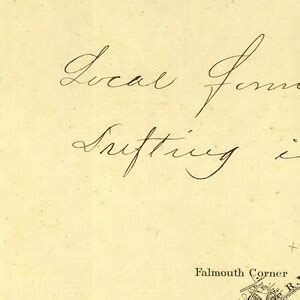 Local
Drifting i
Falmouth Corner